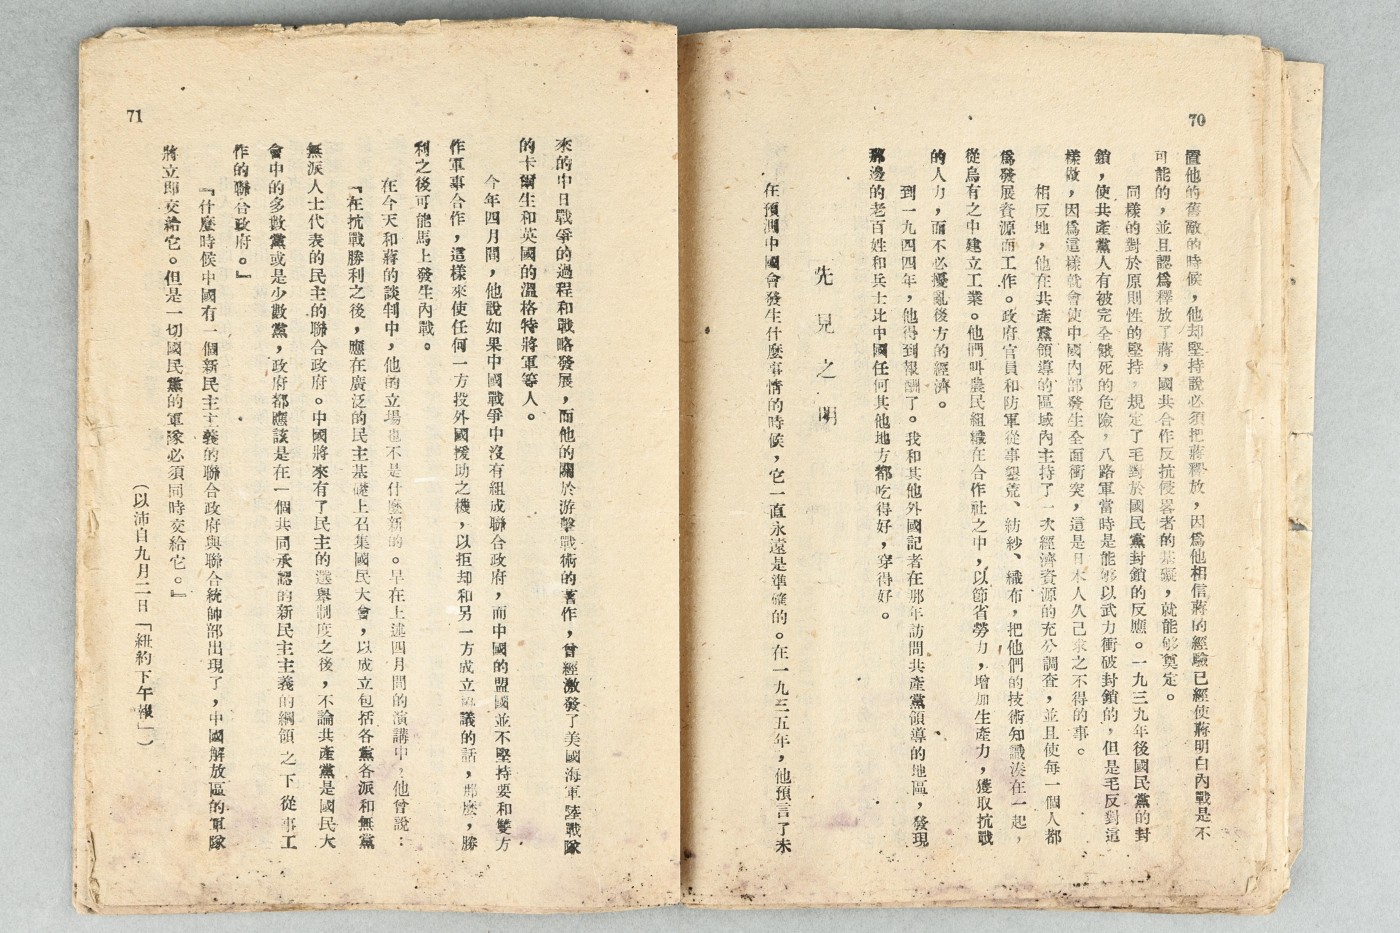 70
置他的舊敵的時候，他却堅持說必須把蔣釋放，因爲他相信蔣的經驗已經使蔣明白內戰是不
可能的，並且認爲釋放了蔣，國共合作反抗侵畧者的基礎，就能够奠定。
同樣的對於原則性的堅持，規定了毛對於國民黨封鎖的反應。一九三九年後國民黨的封
鎖，使共產黨人有被完全餓死的危險，八路軍當時是能够以武力衝破封鎖的，但是毛反對這
樣做，因爲這樣就會使中國內部發生全面衝突，這是日本人久已求之不得的事。
相反地，他在共產黨領導的區域內主持了一次經濟資源的充分調查，並且使每一個人都
爲發展資源而工作。政府官員和防軍從事墾荒、紡紗、織布，把他們的技術知識湊在一起，
從烏有之中建立工業。他們叫農民組織在合作社之中，以節省勞力，增加生產力，獲取抗戰
的人力，而不必擾亂後方的經濟。
到一九四四年，他得到報酬了。我和其他外國記者在那年訪問共產黨領導的地區，發現
那邊的老百姓和兵士比中國任何其他地方都吃得好，穿得好。
先見之明
在預測中國會發生什麼事情的時候，它一直永遠是準確的。在一九三五年，他預言了未
71
來的中日戰爭的過程和戰略發展，而他的關於游擊戰術的著作，曾經激發了美國海軍陸戰隊
的卡爾生和英國的溫格特將軍等人。
今年四月間，他說如果中國戰爭中沒有組成聯合政府，而中國的盟國並不堅持要和雙方
作軍事合作，這樣來使任何一方投外國援助之機，以拒却和另一方成立協議的話，那麼，勝
利之後可能馬上發生內戰。
在今天和蔣的談判中，他的立場也不是什麼新的。早在上述四月間的演講中，他曾說：
『在抗戰勝利之後，應在廣泛的民主基礎上召集國民大會，以成立包括各黨各派和無黨
無派人士代表的民主的聯合政府。中國將來有了民主的選舉制度之後，不論共產黨是國民大
會中的多數黨或是少數黨，政府都應該是在一個共同承認的新民主主義的綱領之下從事工
作的聯合政府。』
『什麼時候中國有一個新民主主義的聯合政府與聯合統帥部出現了，中國解放區的軍隊
將立即交給它。但是一切國民黨的軍隊必須同時交給它。』
（以沛自九月二日「紐約下午報」）